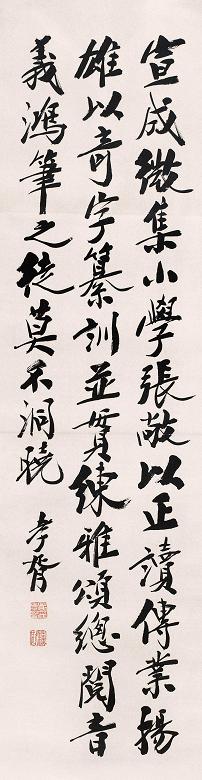 宣成徵集小學張敞以正讀傳業揚
雄以奇字纂訓並貫練雅頌總閱音
義鴻筆之徒莫不洞曉
孝胥